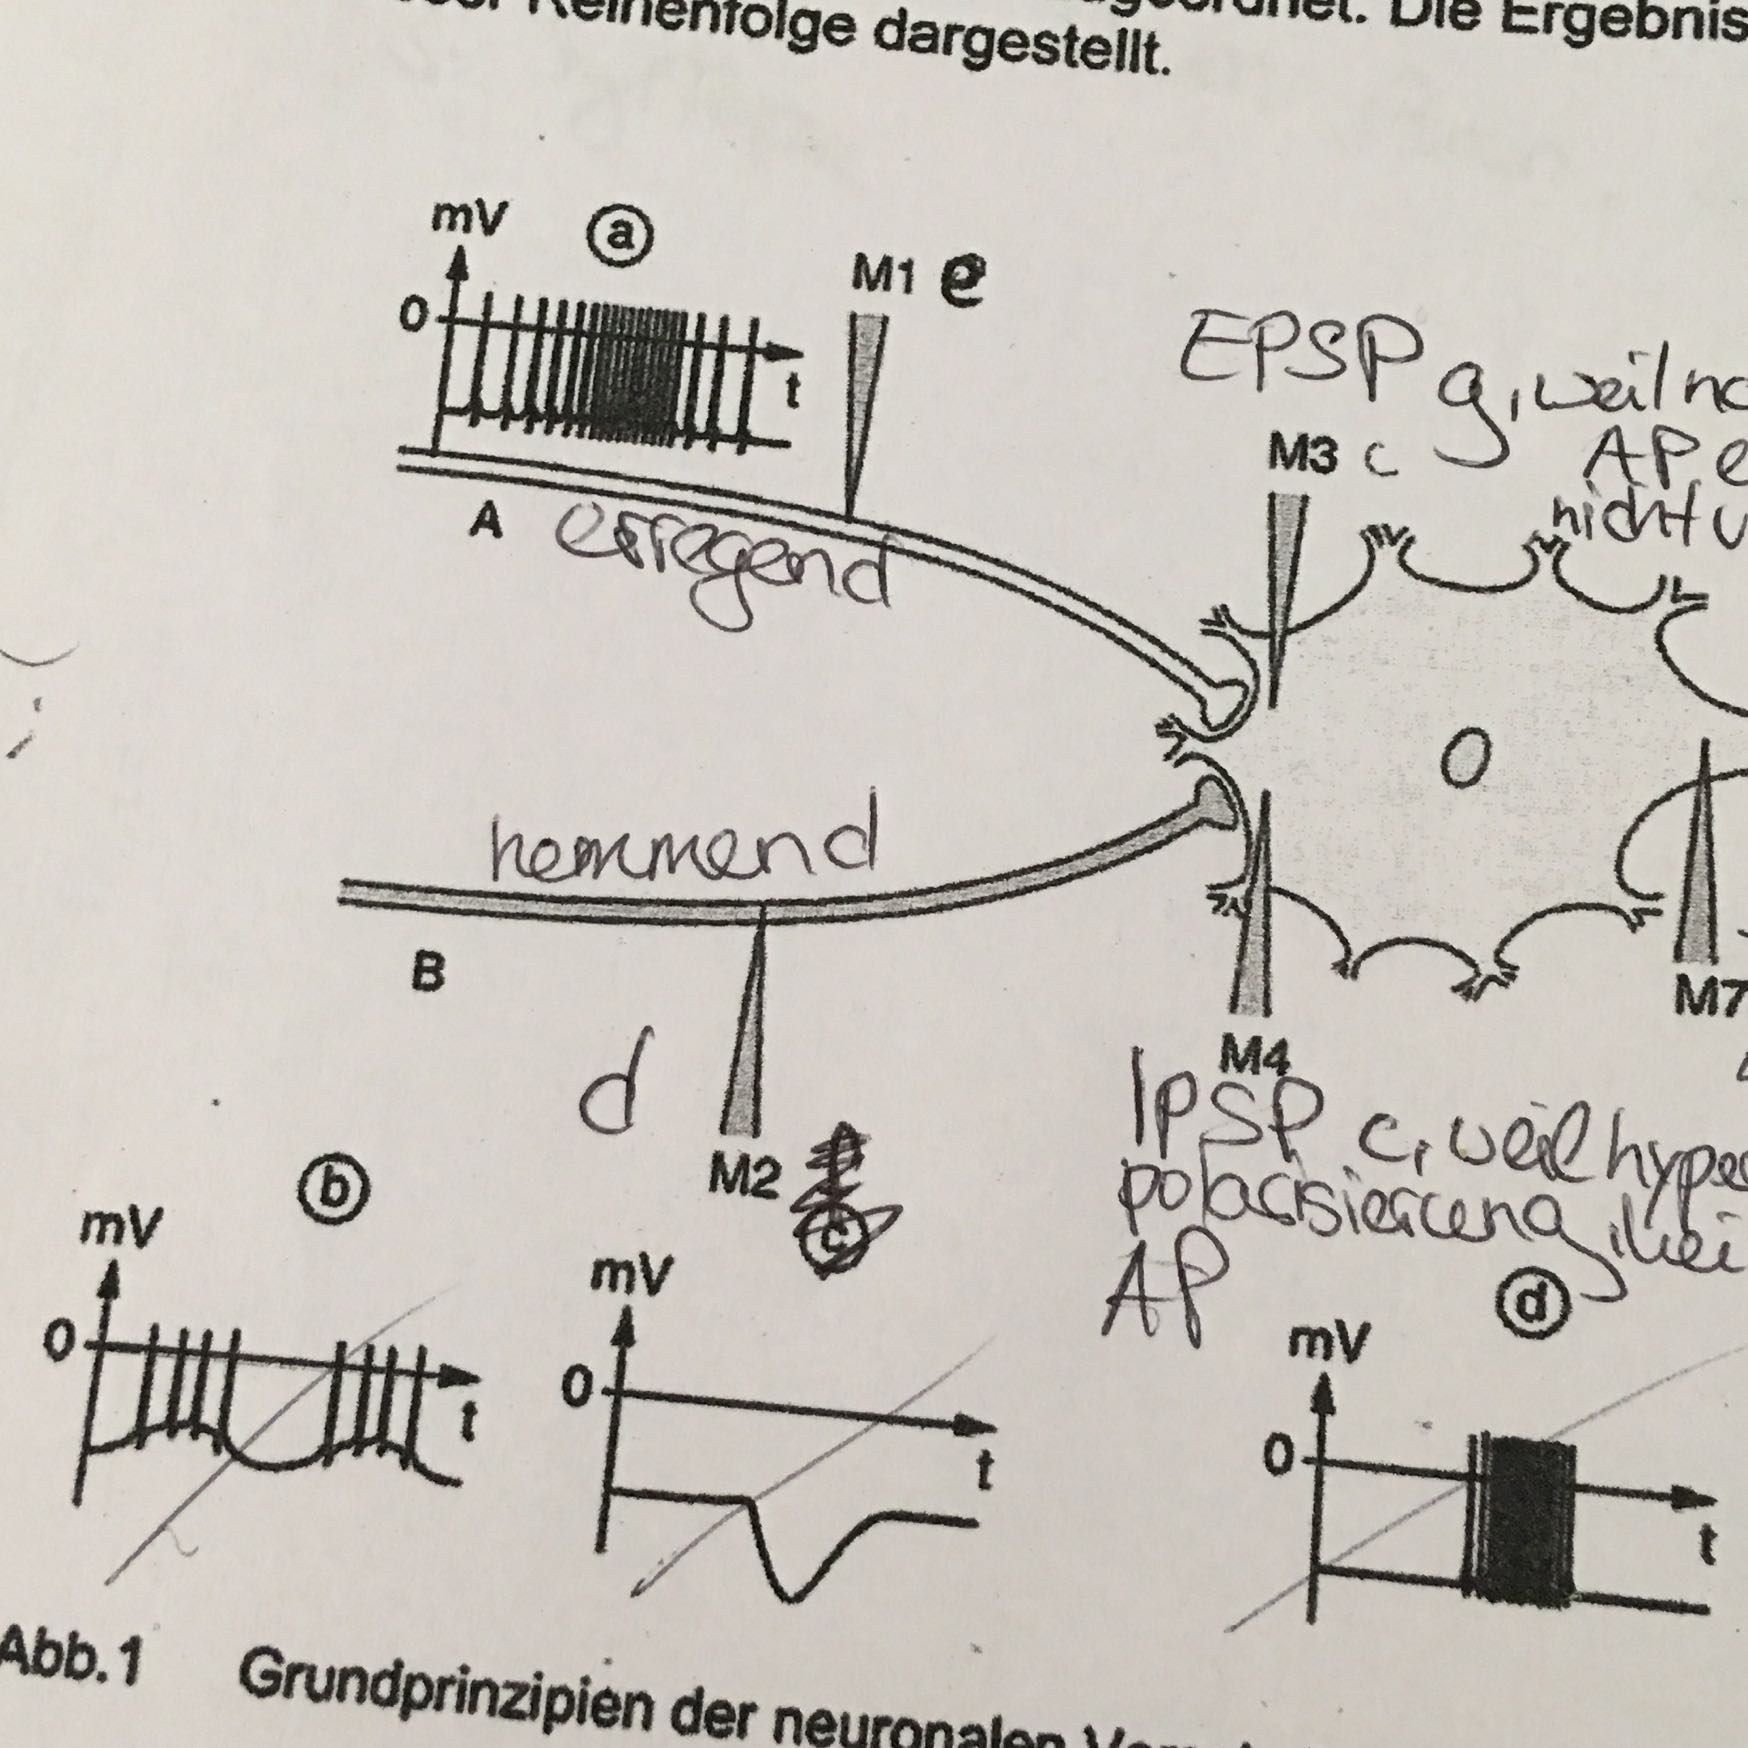 Reihenfolge dargestellt.
Die Ergebnis
mV
a
M1 e
0
t
EPSP g, weil
M3 c
AP
nicht
A erregend
0
hemmend
B
M7
d
M4
M2
c
IPSP c, weil hyper
polarisierung, kei
AP
b
mV
0
t
mV
0
t
d
mV
0
t
Abb. 1 Grundprinzipien der neuronalen